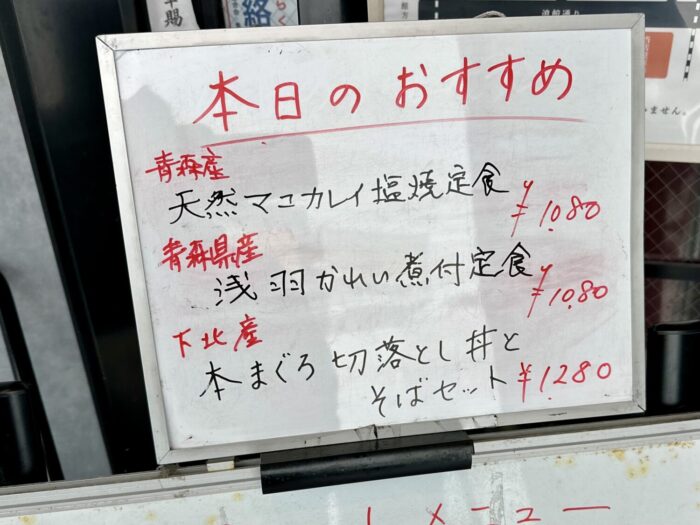 本日のおすすめ
青森産
天然マコカレイ塩焼定食 ¥1080
青森県産
浅羽かれい煮付定食 ¥1080
下北産
本まぐろ切落とし丼と
そばセット ¥1.280
メニュー
ません。